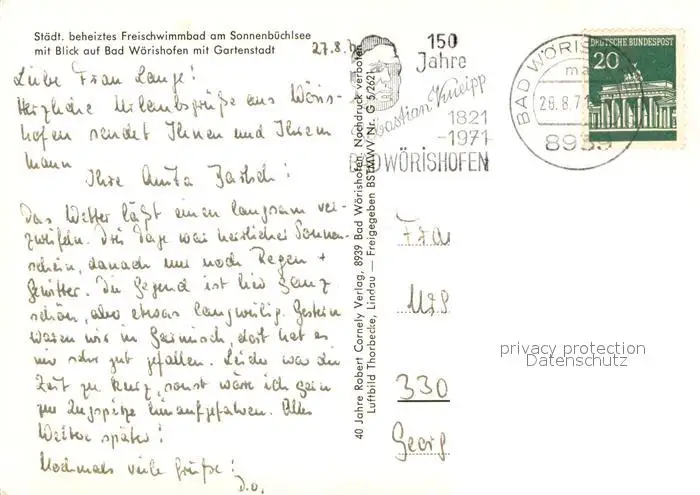 Städt. beheiztes Freischwimmbad am Sonnenbüchlsee
mit Blick auf Bad Wörishofen mit Gartenstadt
27.8.
Liebe Frau Lange!
Herzliche Urlaubsgrüße aus Wöris-
hofen sendet Ihnen und Ihrem
Mann
Ihre Anita Bartsch!
Das Wetter läßt einen langsam ver-
zweifeln. Drei Tage war herrlicher Sonnen-
schein, danach nur noch Regen +
Gewitter. Die Gegend ist hier ganz
schön, aber etwas langweilig. Gestern
waren wir in Garmisch, dort hat es
mir sehr gut gefallen. Leider war die
Zeit zu kurz, sonst wäre ich gern
zur Zugspitze hinaufgefahren. Alles
Weitere später!
Nochmals viele Grüße!
D.O.
40 Jahre Robert Cornely Verlag, 8939 Bad Wörishofen. Nachdruck verboten
Luftbild Thorbecke, Lindau — Freigegeben BSTMWV Nr. G 5/2621
150
Jahre
Sebastian Kneipp
1821
-1971
BAD WÖRISHOFEN
BAD WÖRIS
26.8.7
8939
DEUTSCHE BUNDESPOST
20
Frau
330
Georg
privacy protection
Datenschutz